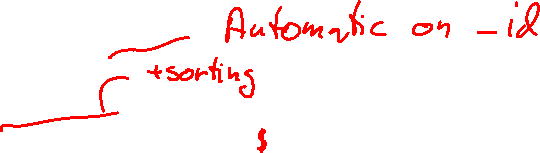 Automatic on _id
+sorting